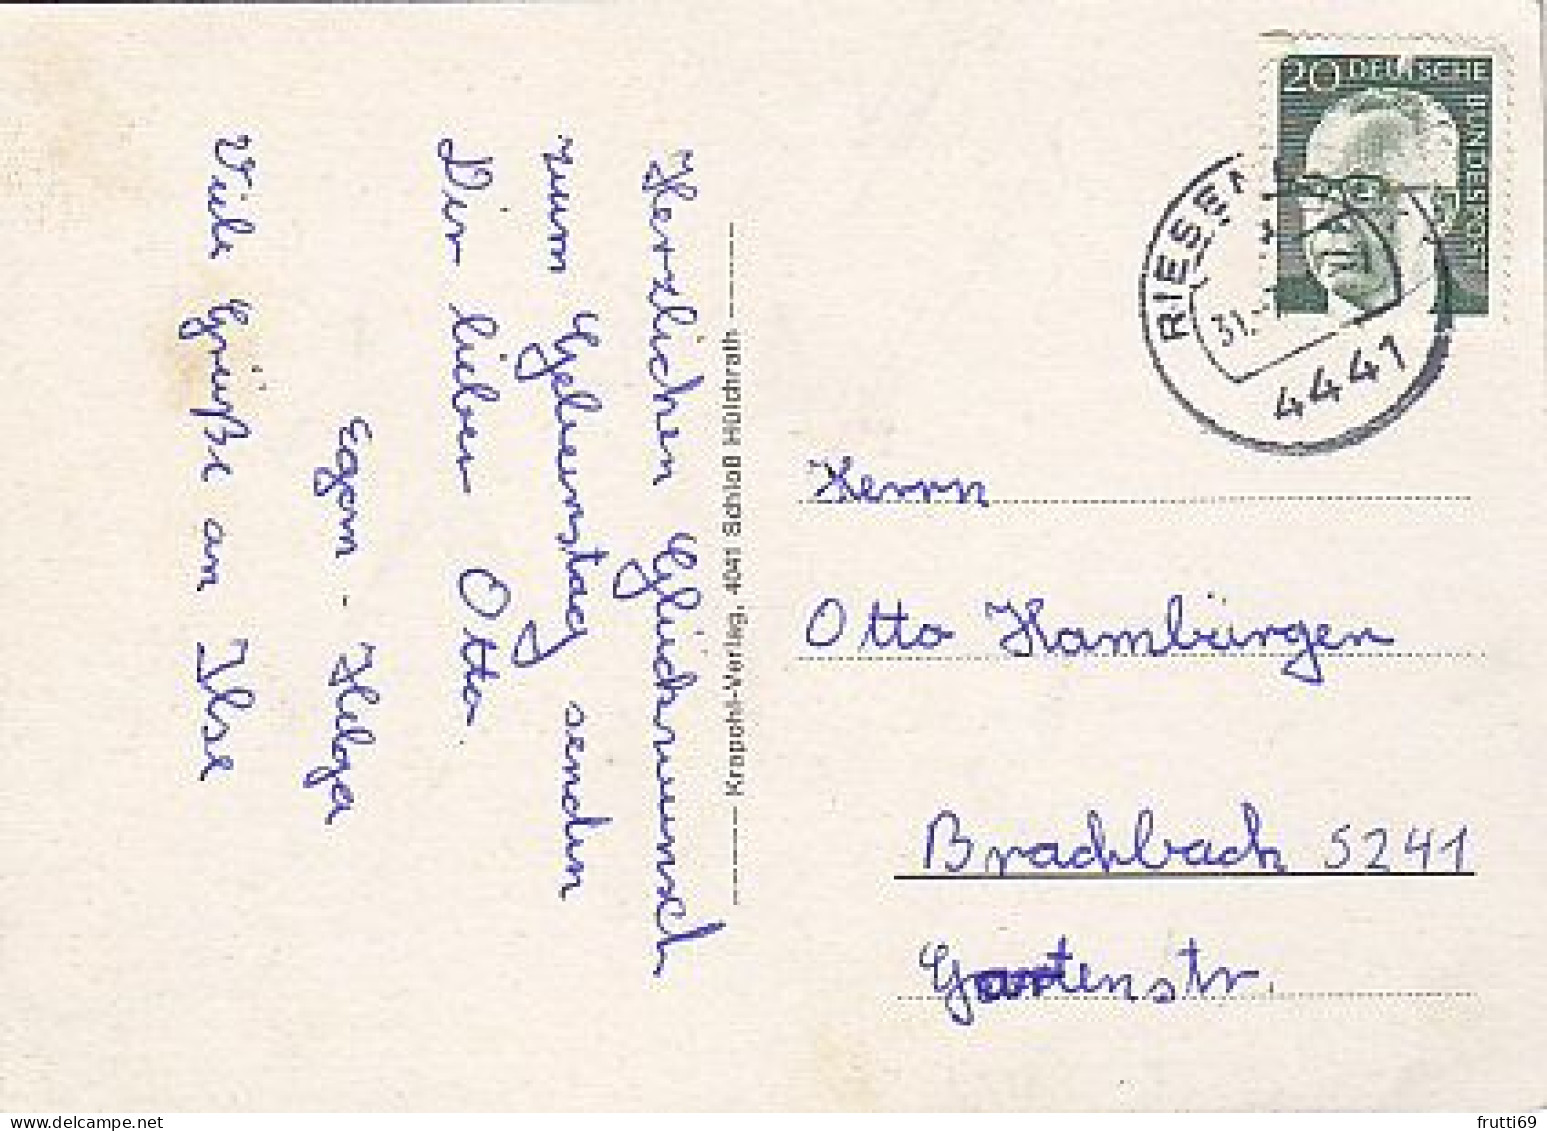 Herzlichen Glückwunsch
zum Geburtstag senden
Dir lieber Otto.
Egon - Helga
Viele Grüße an Ilse
Krapohl-Verlag, 4041 Schloß Hülchrath
20 DEUTSCHE BUNDESPOST
RIESEN
31.-
4441
Herrn
Otto Hambürgen
Brachbach 5241
Gartenstr.
frutti69